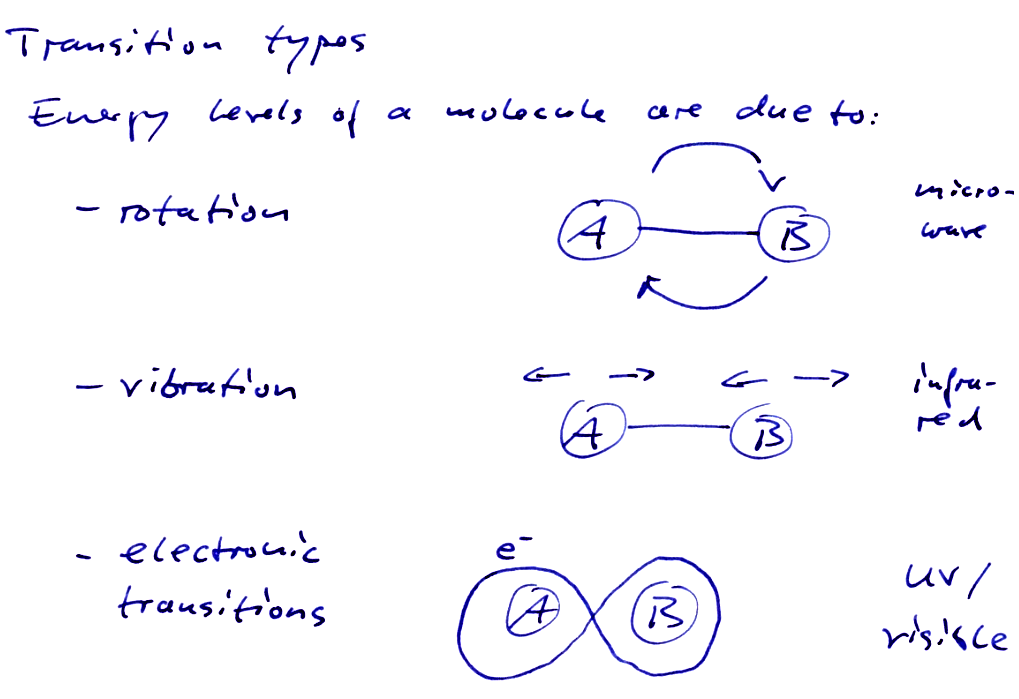 Transition types
Energy levels of a molecule are due to:
- rotation
A
B
micro-
wave
- vibration
A
B
infra-
red
- electronic
transitions
e⁻
A
B
UV/
visible